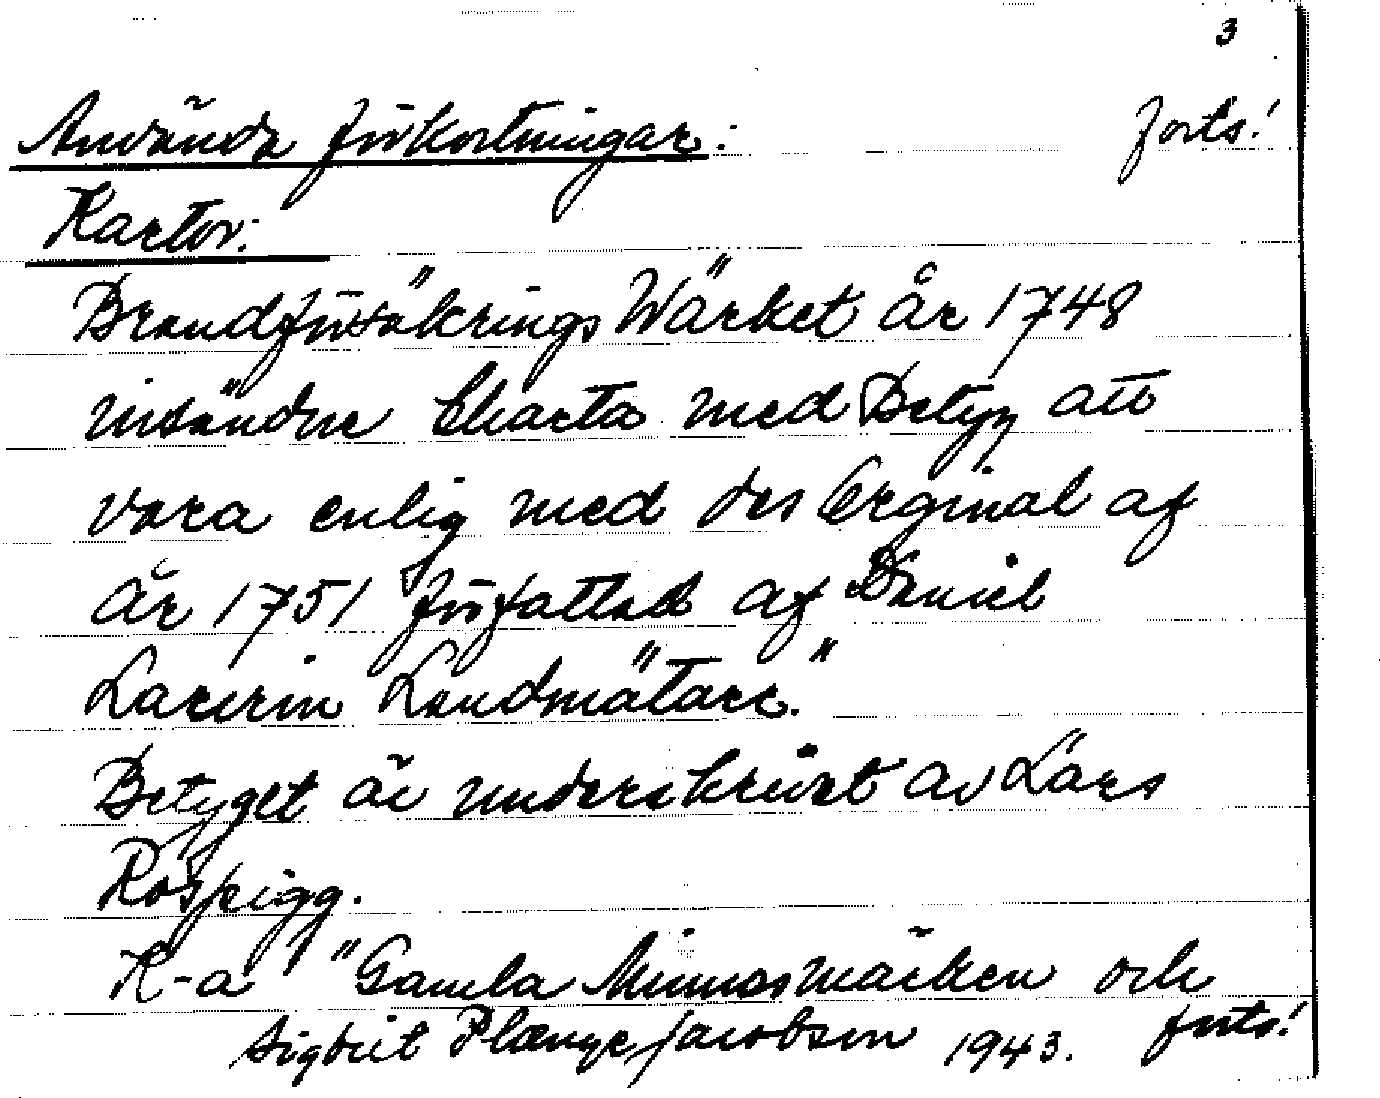 3
Använda förkortningar: forts!
Kartor:
Brandförsäkrings Wärket år 1748
insändne Charta med Betyg att
vara enlig med des Orginal af
år 1751 författad af Daniel
Landmätare."
Betyget är underskrivet av Lars
Rospigg.
K-a 1 "Gamla Minnesmärken och
Sigbrit Plænge Jacobson 1943. forts!